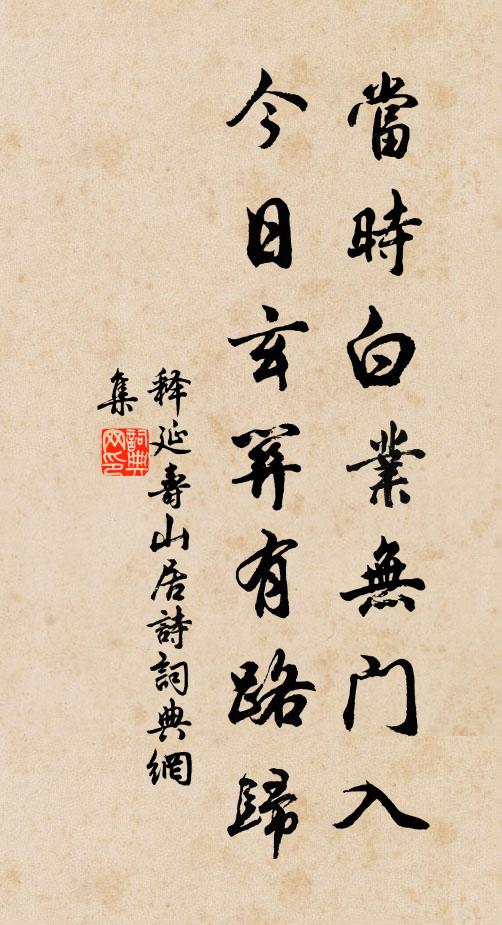 當時白業無門入
今日玄關有路歸
释延壽山居詩詞典網
集
詞典网印